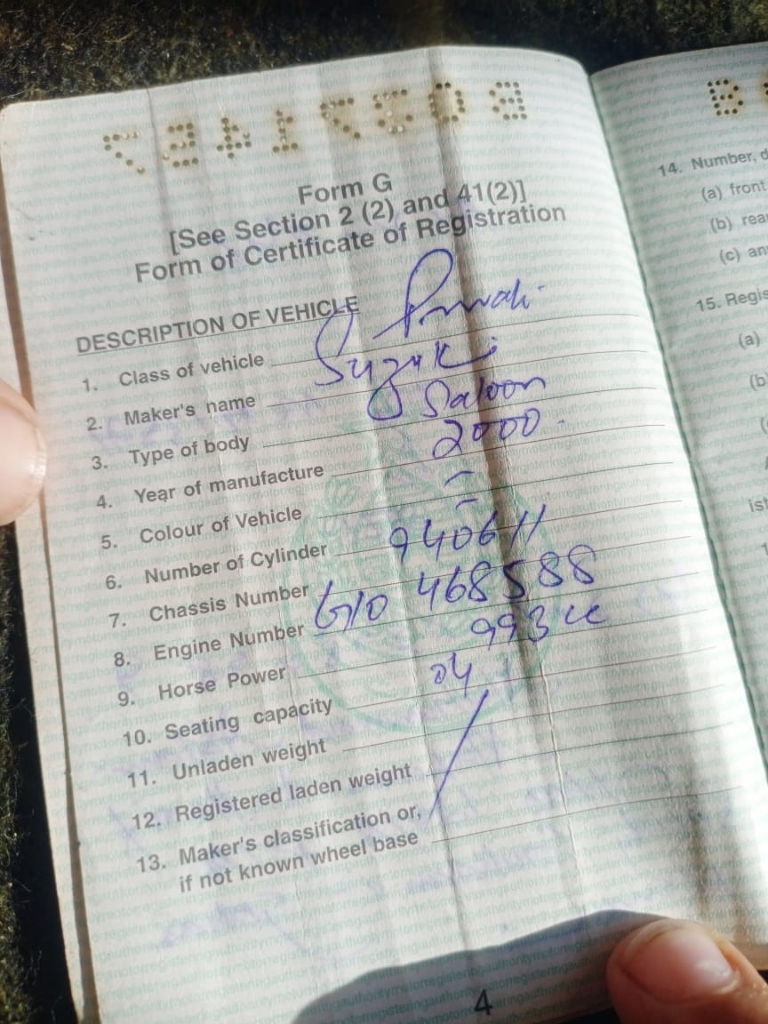 Form G
[See Section 2 (2) and 41(2)]
Form of Certificate of Registration
DESCRIPTION OF VEHICLE
1. Class of vehicle Private
2. Maker's name Suzuki
3. Type of body Saloon
4. Year of manufacture 2000.
5. Colour of Vehicle -
6. Number of Cylinder -
7. Chassis Number 940611
8. Engine Number G10 468588
9. Horse Power 993 cc
10. Seating capacity 04
11. Unladen weight
12. Registered laden weight
13. Maker's classification or,
if not known wheel base
4
14. Number, d
(a) front
(b) rea
(c) an
15. Regis
(a)
(b)